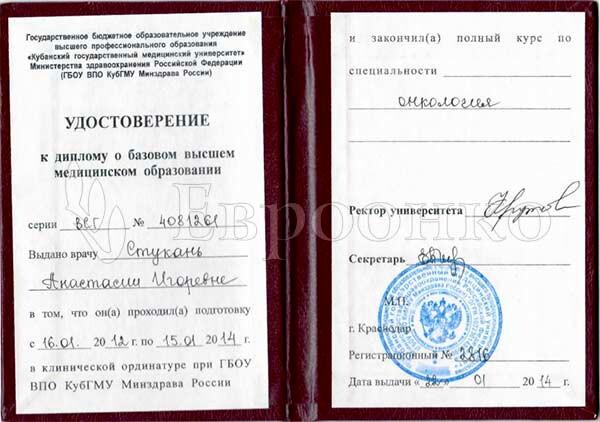 Государственное бюджетное образовательное учреждение
высшего профессионального образования
«Кубанский государственный медицинский университет»
Министерства здравоохранения Российской Федерации
(ГБОУ ВПО КубГМУ Минздрава России)
УДОСТОВЕРЕНИЕ
к диплому о базовом высшем
медицинском образовании
серии ВСГ № 4081261
Выдано врачу Стукань
Анастасии Игоревне
в том, что он(а) проходил(а) подготовку
с 16.01. 2012 г. по 15.01 2014 г.
в клинической ординатуре при ГБОУ
ВПО КубГМУ Минздрава России
и закончил(а) полный курс по
специальности
онкология
Ректор университета
Секретарь
М.П.
г. Краснодар
Регистрационный № 2816
Дата выдачи « 22 » 01 2014 г.
Евроонко